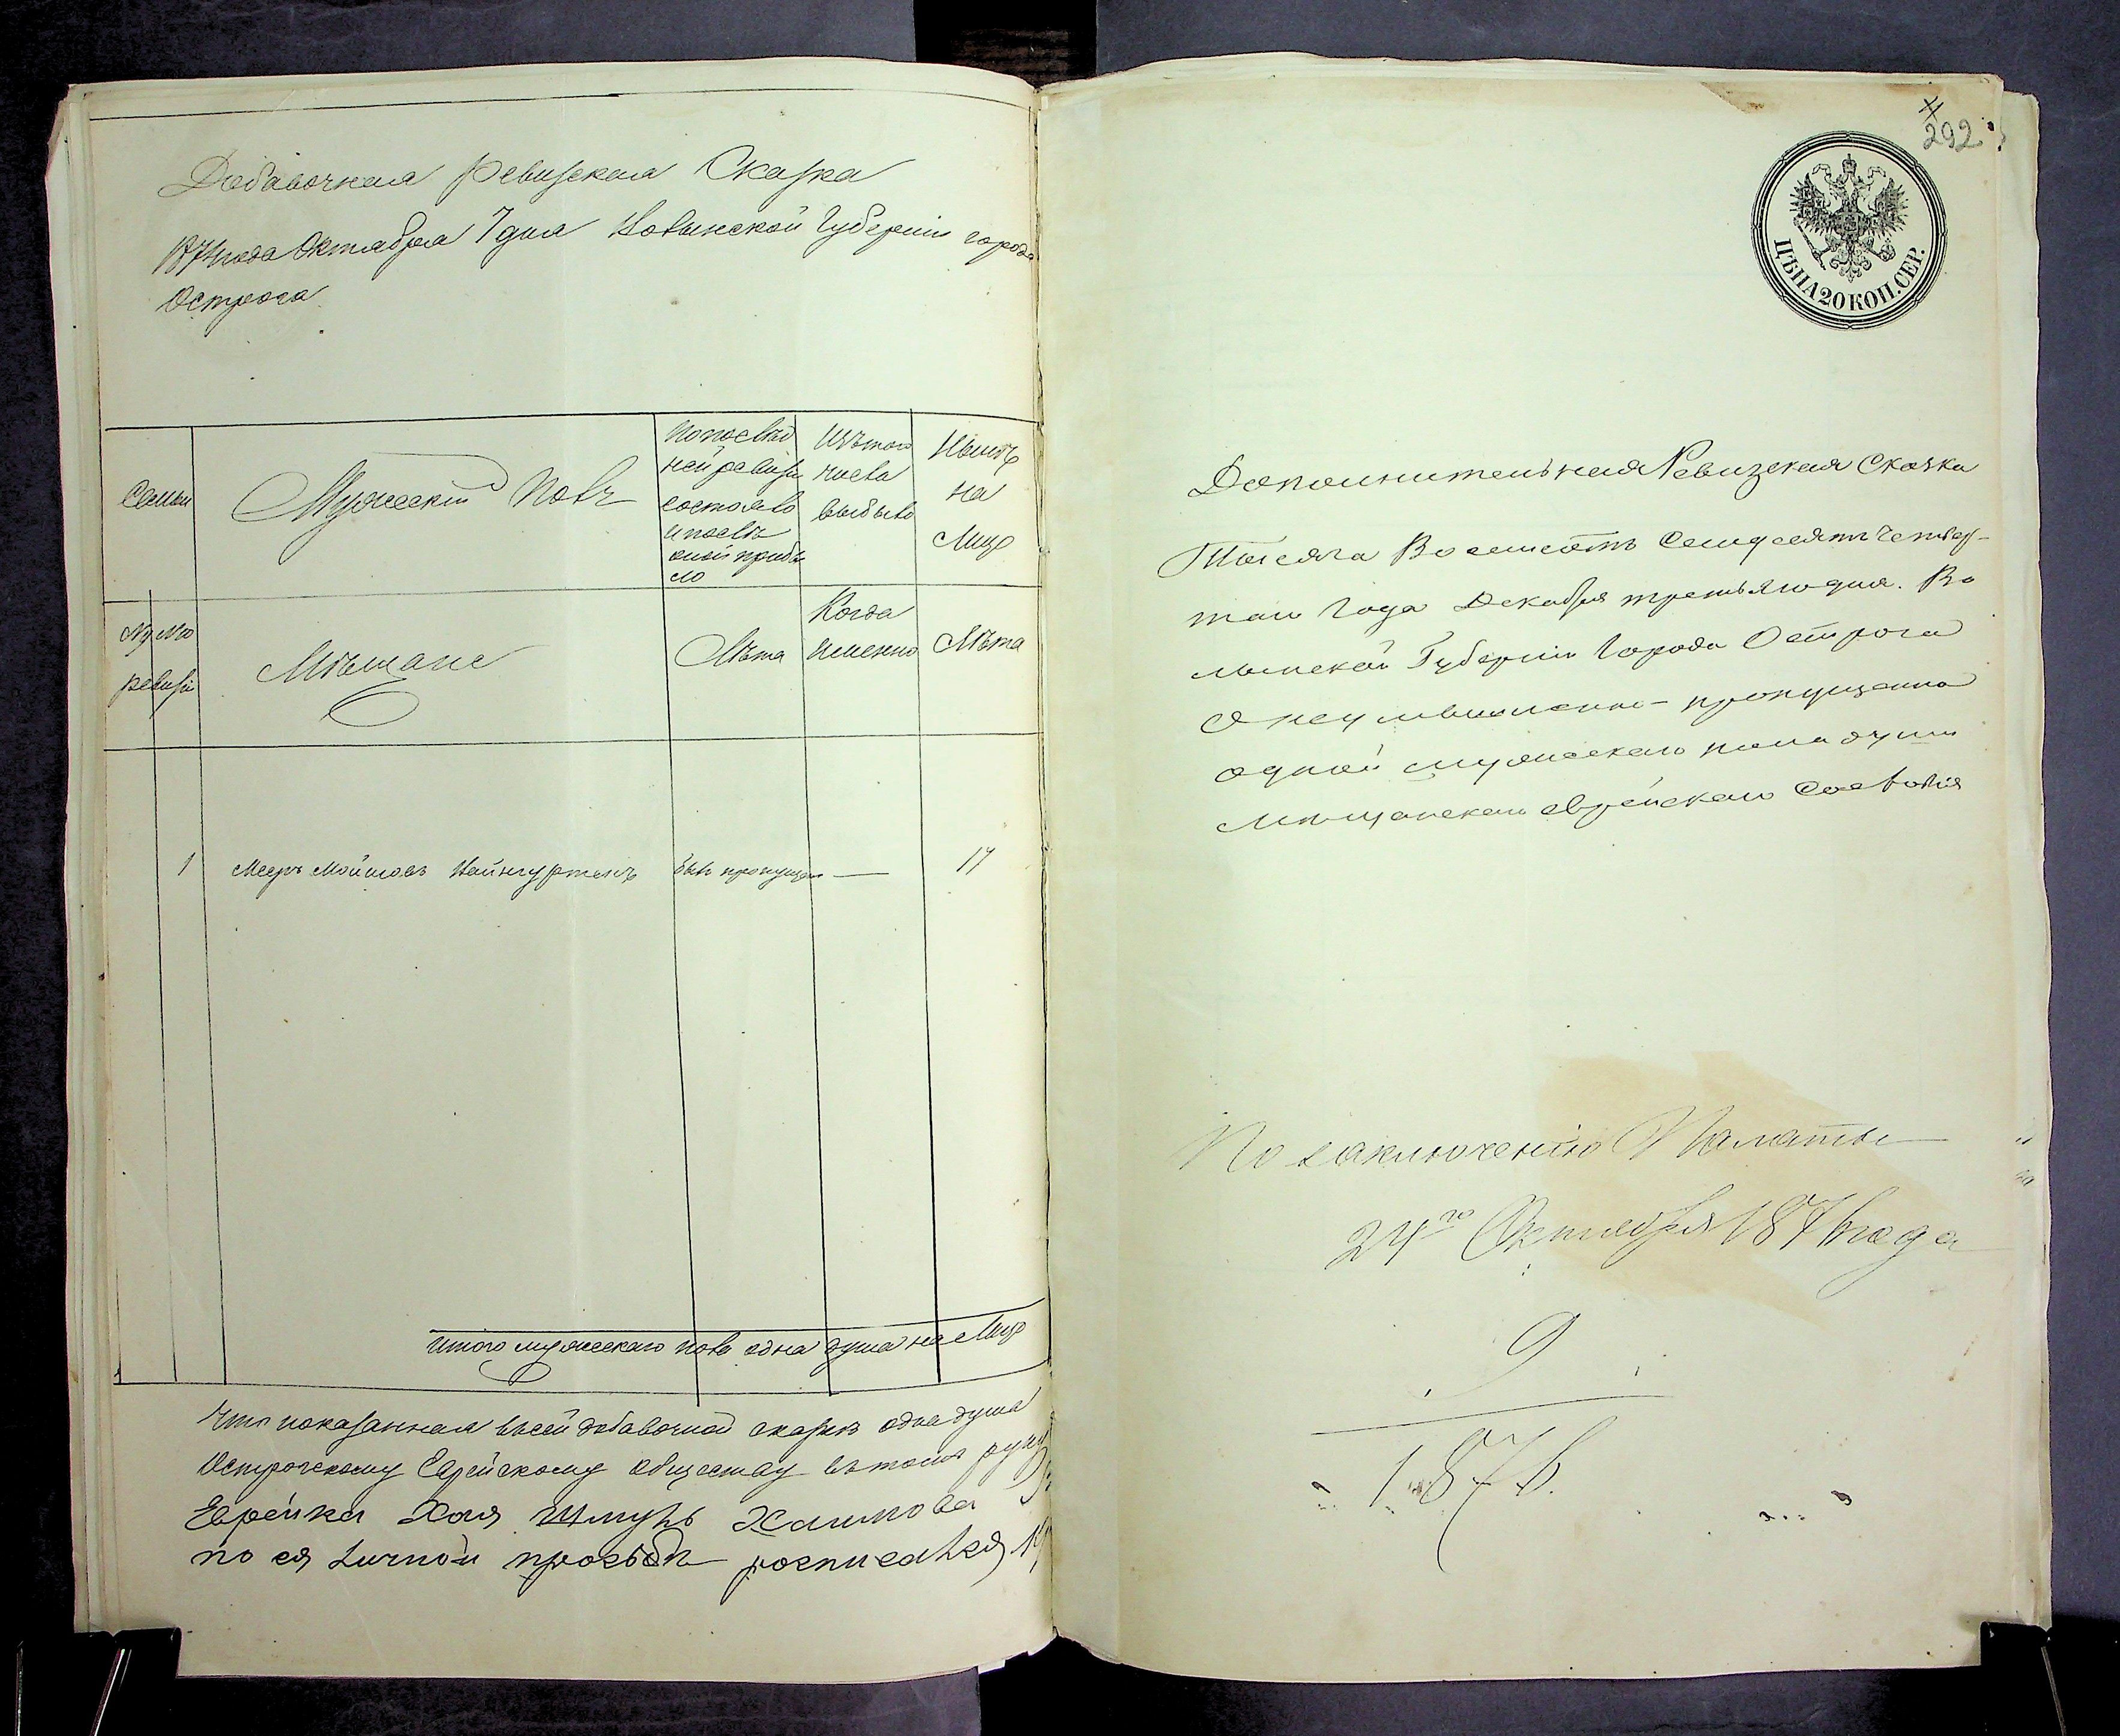 Добавочная ревизская Сказка
1874 года Октября 7 дня Волынской Губерніи города
Острога
Семьи
Мужескій полъ
По послѣд
ней ревизіи
состояло
и послѣ
оной прибы
ло
Изъ того
числа
выбыло
Нынѣ
на
Лицо
ревизіи
Мѣщане
Лѣта
Когда
именно
Лѣта
1 Мееръ Мошковъ Вайнгуртенъ былъ пропущен — 17
Итого мужескаго пола одна душа на Лицо
Что показанная въ сей добавочной сказкѣ одна душа
Острогскому Еврейскому обществу въ томъ
Еврейка Хая Шмуль Хаимова
по ея личной просьбѣ росписался
292
ЦѢНА 20 КОП. СЕР.
Дополнительная Ревизская Сказка
Тысяча Восемсотъ Семдесятъ четвер-
таго Года Декабря третьяго дня. Во
лынской Губерніи Города Острога
О неумышленно-пропущенной
одной мужескаго пола души
мѣщанскаго еврейскаго Сословія
По заключенію Палаты
24го Октября 1876 года
9
1876.